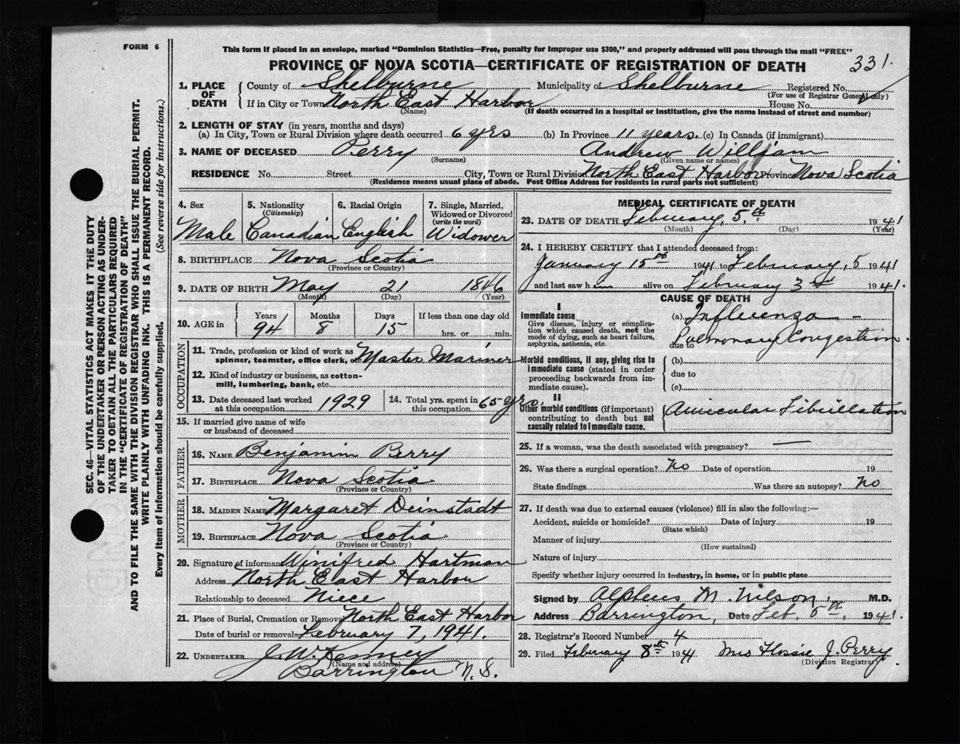 FORM 6
This form if placed in an envelope, marked "Dominion Statistics—Free, penalty for improper use $300," and properly addressed will pass through the mail "FREE"
PROVINCE OF NOVA SCOTIA—CERTIFICATE OF REGISTRATION OF DEATH
331.
1. PLACE OF DEATH
County of Shelburne Municipality of Shelburne Registered No.
(For use of Registrar General only)
If in City or Town North East Harbor House No.
(Name) (If death occurred in a hospital or institution, give the name instead of street and number)
2. LENGTH OF STAY (in years, months and days)
(a) In City, Town or Rural Division where death occurred 6 yrs (b) In Province 11 years. (c) In Canada (if immigrant)
3. NAME OF DECEASED Perry Andrew William
(Surname) (Given name or names)
RESIDENCE No. Street City, Town or Rural Division North East Harbor Province Nova Scotia
(Residence means usual place of abode. Post Office Address for residents in rural parts not sufficient)
4. Sex
Male
5. Nationality
(Citizenship)
Canadian
6. Racial Origin
English
7. Single, Married, Widowed or Divorced
(write the word)
Widower
8. BIRTHPLACE Nova Scotia
(Province or Country)
9. DATE OF BIRTH May 21 1846
(Month) (Day) (Year)
10. AGE in
Years Months Days If less than one day
94 8 15 hrs. or min.
OCCUPATION
11. Trade, profession or kind of work as spinner, teamster, office clerk, etc. Master Mariner
12. Kind of industry or business, as cotton-mill, lumbering, bank, etc.
13. Date deceased last worked at this occupation 1929
14. Total yrs. spent in this occupation 65 yrs.
15. If married give name of wife or husband of deceased
FATHER
16. NAME Benjamin Perry
17. BIRTHPLACE Nova Scotia
(Province or Country)
MOTHER
18. MAIDEN NAME Margaret Deinstadt
19. BIRTHPLACE Nova Scotia
(Province or Country)
20. Signature of informant Winifred Hartman
Address North East Harbor
Relationship to deceased Niece
21. Place of Burial, Cremation or Removal North East Harbor
Date of burial or removal February 7, 1941.
22. UNDERTAKER J. W. Kenney
(Name and address)
Barrington N.S.
MEDICAL CERTIFICATE OF DEATH
23. DATE OF DEATH February, 5.th 1941
(Month) (Day) (Year)
24. I HEREBY CERTIFY that I attended deceased from:
January 15th 1941 to February, 5 1941
and last saw h alive on February 3d 1941.
CAUSE OF DEATH
I
Immediate cause
Give disease, injury or complication which caused death, not the mode of dying, such as heart failure, asphyxia, asthenia, etc.
(a) Influenza —
due to Pulmonary Congestion.
Morbid conditions, if any, giving rise to immediate cause (stated in order proceeding backwards from immediate cause).
(b)
due to
(c)
II
Other morbid conditions (if important) contributing to death but not causally related to immediate cause.
Auricular Fibrillation
25. If a woman, was the death associated with pregnancy? —
26. Was there a surgical operation? No Date of operation 19
State findings Was there an autopsy? No
27. If death was due to external causes (violence) fill in also the following:—
Accident, suicide or homicide? Date of injury 19
(State which)
Manner of injury
(How sustained)
Nature of injury
Specify whether injury occurred in industry, in home, or in public place
Signed by Alpheus M. Wilson, M.D.
Address Barrington, Date Feb. 5th, 1941.
28. Registrar's Record Number 4
29. Filed February 8th 1941 Mrs Flossie J. Perry
(Division Registrar)
SEC. 46—VITAL STATISTICS ACT MAKES IT THE DUTY
OF THE UNDERTAKER OR PERSON ACTING AS UNDER-
TAKER TO OBTAIN ALL THE PARTICULARS REQUIRED
IN THE "CERTIFICATE OF REGISTRATION OF DEATH"
AND TO FILE THE SAME WITH THE DIVISION REGISTRAR WHO SHALL ISSUE THE BURIAL PERMIT.
WRITE PLAINLY WITH UNFADING INK. THIS IS A PERMANENT RECORD.
Every item of information should be carefully supplied. (See reverse side for instructions.)